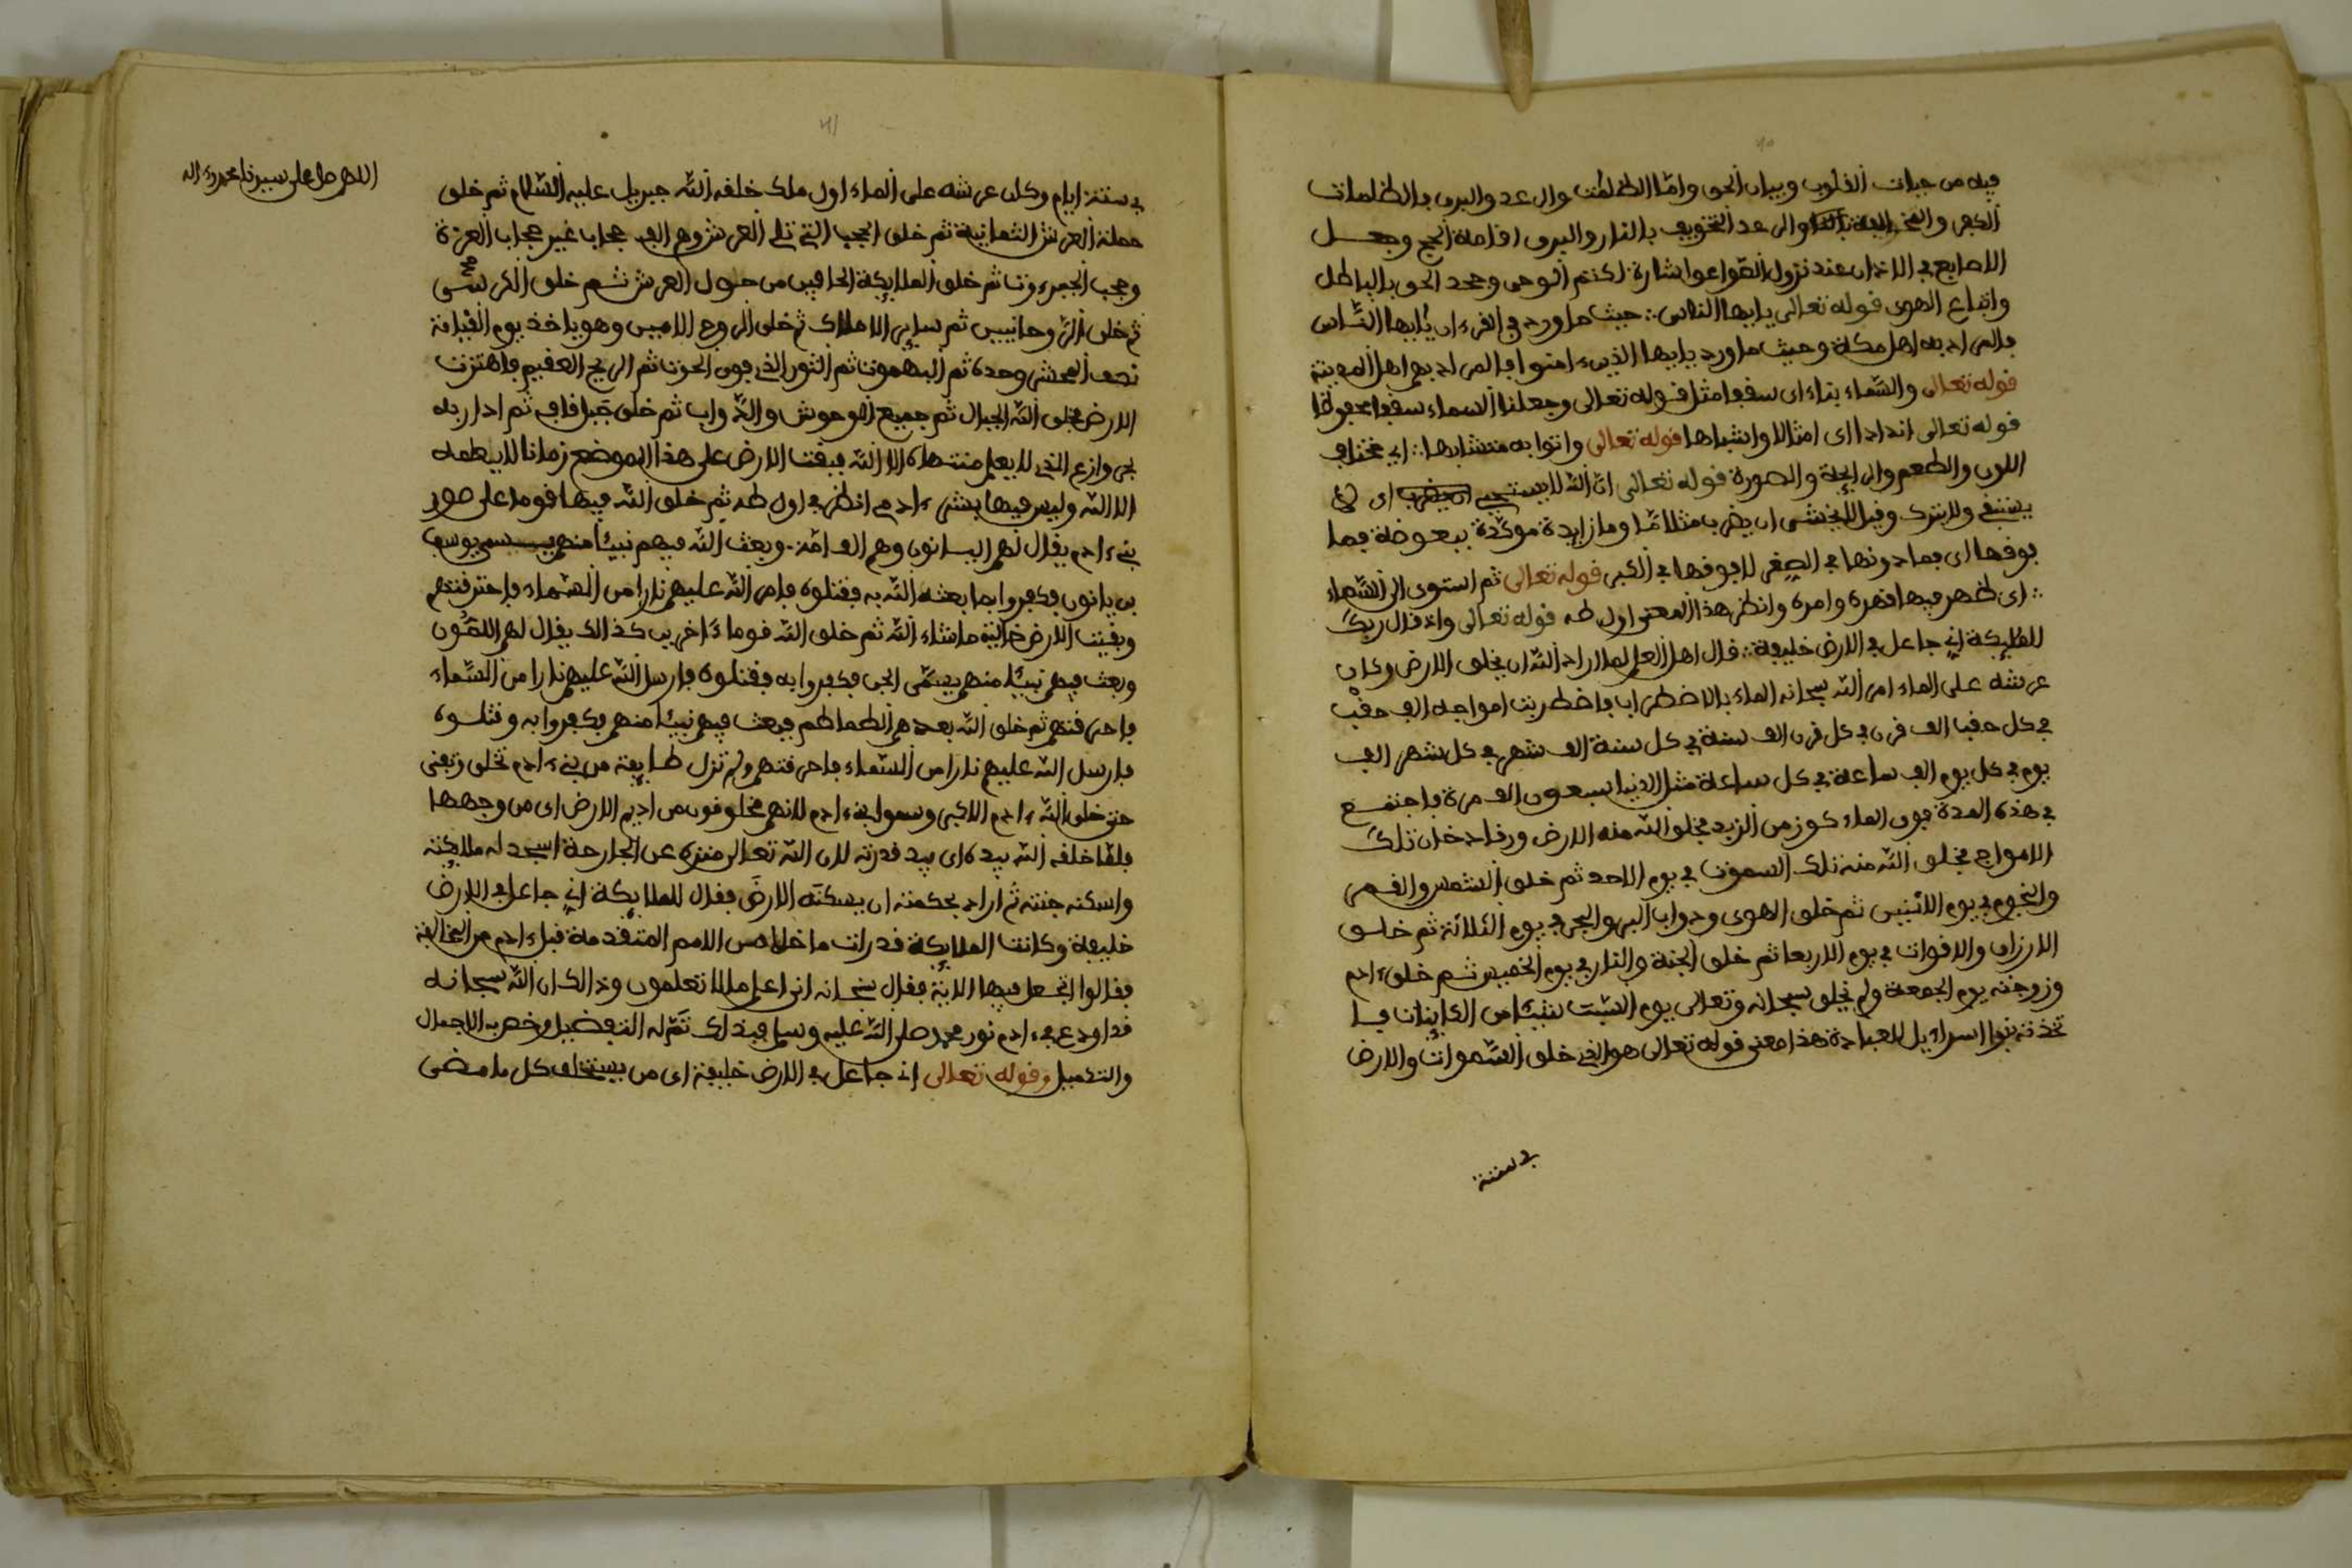 فيه من حيات القلوب وبيان الحق واما الظلمت والرعد والبرق فالظلمات
الكفر والرعد التخويف بالنار والبرق اقامة الحجج وجعل
الاصابع في الاذان عند نزول الصواعق اشارة لكتم الوحى وجحد الحق بالباطل
واتباع الهوى قوله تعالى يايها الناس ∴ حيث ما ورد في القرءان يايها الناس
فالمراد به اهل مكة وحيث ما ورد يايها الذين ءامنوا فالمراد بهم اهل المدينة
قوله تعالى والسماء بناء اى سقفا مثل قوله تعالى وجعلنا السماء سقفا محفوظا
قوله تعالى اندادا اى امثالا واشباها قوله تعالى واتوا به متشابها ∴ اى مختلف
اللون والطعم والرايحة والصورة قوله تعالى ان الله لا يستحي ان يضرب اى لا
ولا يترك وقيل لا يخشى ان يضرب مثلا ما وما زايدة موكدة ببعوضة فما
فوقها اى فما دونها في الصغر لا فوقها في الكبر قوله تعالى ثم استوى الى السماء
∴ اى ظهر فيها قهره وامره وانظر هذا المعنى اول طه قوله تعالى واذ قال ربك
للمليكة اني جاعل في الارض خليفة ∴ قال اهل العلم لما اراد الله ان يخلق الارض وكان
عرشه على الماء امر الله سبحانه الماء بالاضطراب فاضطربت امواجه الف حقب
في كل حقب الف قرن في كل قرن الف سنة في كل سنة الف شهر في كل شهر الف
يوم في كل يوم الف ساعة في كل ساعة مثل الدنيا سبعون الف مرة فاجتمع
في هذه المدة فوق الماء كوز من الزبد فخلق الله منه الارض ورقا دخان تلك
الامواج فخلق الله منه تلك السموت في يوم الاحد ثم خلق الشمس والقمر
والنجوم في يوم الاثنين ثم خلق الهوى ودواب البر والبحر في يوم الثلاثة ثم خلق
الارزاق والاقوات في يوم الاربعا ثم خلق الجنة والنار في يوم الخميس ثم خلق ءادم
وزوجته يوم الجمعة ولم يخلق سبحانه وتعالى يوم السبت شيئا من الكاينات فا
تخذته بنوا اسراءيل للعبادة هذا معنى قوله تعالى هو الذي خلق السموات والارض
في ستة
في ستة ايام وكان عرشه على الماء اول ملك خلقه الله جبريل عليه السلام ثم خلق
حملة العرش الثمانية ثم خلق الحجب التي تلي العرش وهم الف حجابا غير حجاب العزة
وحجب الجبروت ثم خلق الملايكة الحافين من حول العرش ثم خلق الكرسى
ثم خلق الروحانيين ثم ساير الاملاك ثم خلق الروح الامين وهو ياخذ يوم القيامة
نصف المحشر وحده ثم البهموت ثم الثور الذي فوق الحوت ثم الريح العقيم فاهتزت
الارض فخلق الله الجبال ثم جميع الوحوش والدواب ثم خلق جبل قاف ثم ادار به
الذي لا يعلم منتهاه الا الله فبقت الارض على هذا الموضع زمانا لا يعلمه
الا الله وليس فيها بشر ءادمي انظر في اول طه ثم خلق الله فيها قوما على صور
بني ءادم يقال لهم اليانون وهم الف امة وبعث الله فيهم نبيئا منهم يسمى يوسف
بن يانون فكفروا بما بعثه الله به فقتلوه فامر الله عليهم نارا من السماء فاحترقتهم
وبقيت الارض خالية ما شاء الله ثم خلق الله قوما ءاخرين كذالك يقال لهم
وبعث فيهم نبيئا منهم يسمى الجن فكفروا به فقتلوه فارسل الله عليهم نارا من السماء
فاحرقتهم ثم خلق الله بعدهم الطماطم فبعث فيهم نبيئا منهم فكفروا به وقتلوه
فارسل الله عليهم نارا من السماء فاحرقتهم ولم تزل طايفة من بني ءادم تخلق وتفنى
حتى خلق الله ءادم الاكبر وسموا بني ءادم لانهم مخلوقون من اديم الارض اى من وجهها
فلما خلقه الله بيده اى بيد قدرته لان الله تعالى منزه عن الجارحة اسجد له ملايكته
واسكنه جنته ثم اراد بحكمته ان يسكنه الارض فقال للملايكة اني جاعل في الارض
خليفة وكانت الملايكة قد رات ما خلا من الامم المتقدمة قبل ءادم من المخالفة
فقالوا اتجعل فيها الاية فقال سبحانه اني اعلم ما لا تعلمون وذالك ان الله سبحانه
قد اودع في ءادم نور محمد صلى الله عليه وسلم فبذاك تم له التفضيل وخص به الاجمال
والتكميل وقوله تعالى اني جاعل في الارض خليفة اى من يستخلف كل ما مضى
اللهم صل على سيدنا محمد وءاله